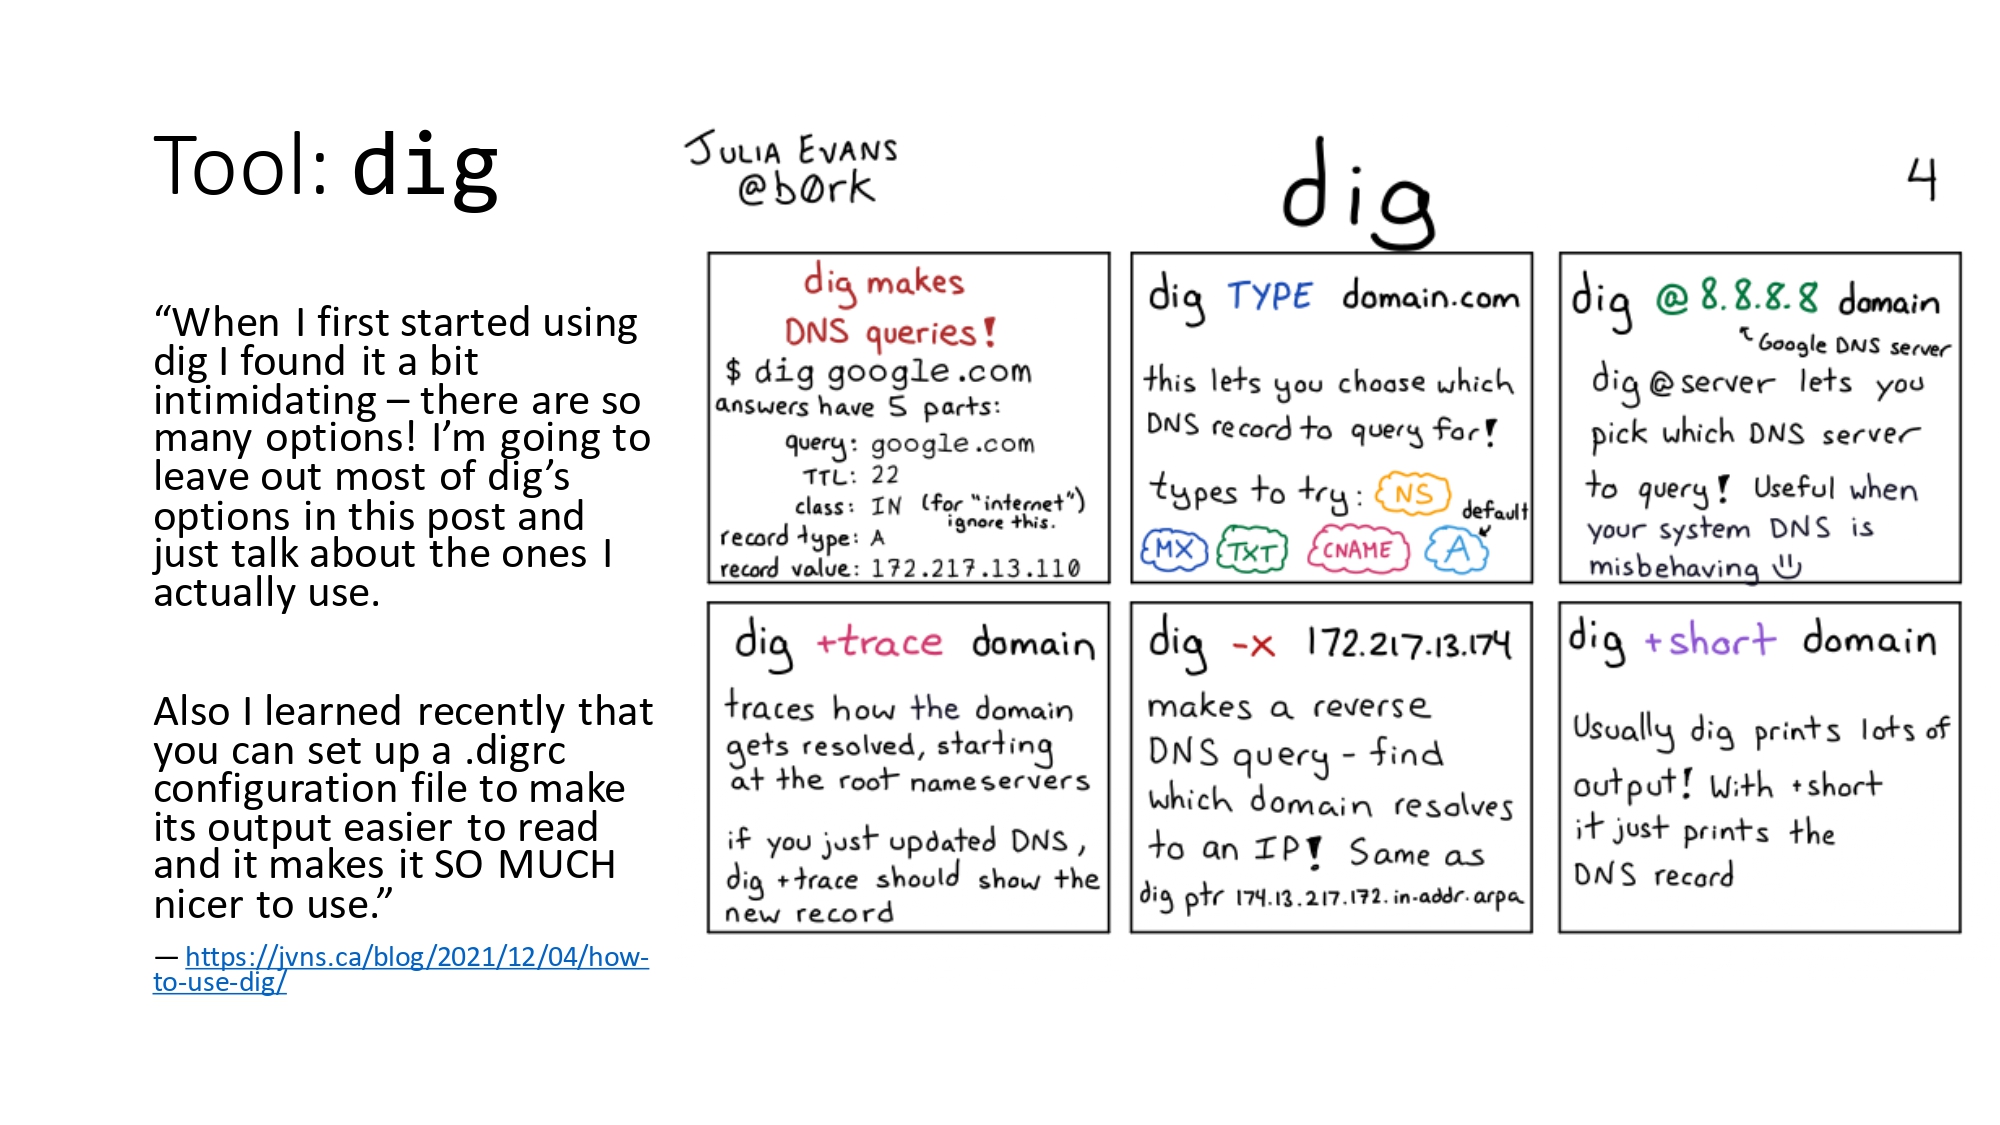 Tool: dig
“When I first started using
dig I found it a bit
intimidating – there are so
many options! I’m going to
leave out most of dig’s
options in this post and
just talk about the ones I
actually use.
Also I learned recently that
you can set up a .digrc
configuration file to make
its output easier to read
and it makes it SO MUCH
nicer to use.”
— https://jvns.ca/blog/2021/12/04/how-
to-use-dig/
JULIA EVANS
@b0rk
dig
4
dig makes
DNS queries!
$ dig google.com
answers have 5 parts:
query: google.com
TTL: 22
class: IN (for "internet")
ignore this.
record type: A
record value: 172.217.13.110
dig TYPE domain.com
this lets you choose which
DNS record to query for!
types to try: NS
default
MX TXT CNAME A
dig @8.8.8.8 domain
Google DNS server
dig @server lets you
pick which DNS server
to query! Useful when
your system DNS is
misbehaving
dig +trace domain
traces how the domain
gets resolved, starting
at the root nameservers
if you just updated DNS,
dig +trace should show the
new record
dig -x 172.217.13.174
makes a reverse
DNS query - find
which domain resolves
to an IP! Same as
dig ptr 174.13.217.172.in-addr.arpa
dig +short domain
Usually dig prints lots of
output! With +short
it just prints the
DNS record